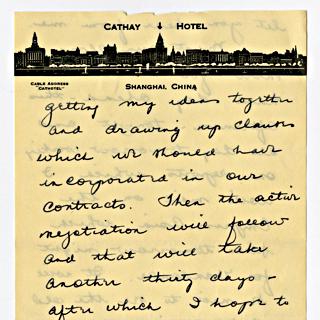 CATHAY HOTEL
CABLE ADDRESS
"CATHOTEL"
SHANGHAI, CHINA
getting my ideas together
and drawing up clauses
which we should have
incorporated in our
contracts. Then the active
negotiation will follow
and that will take
another thirty days -
after which I hope to